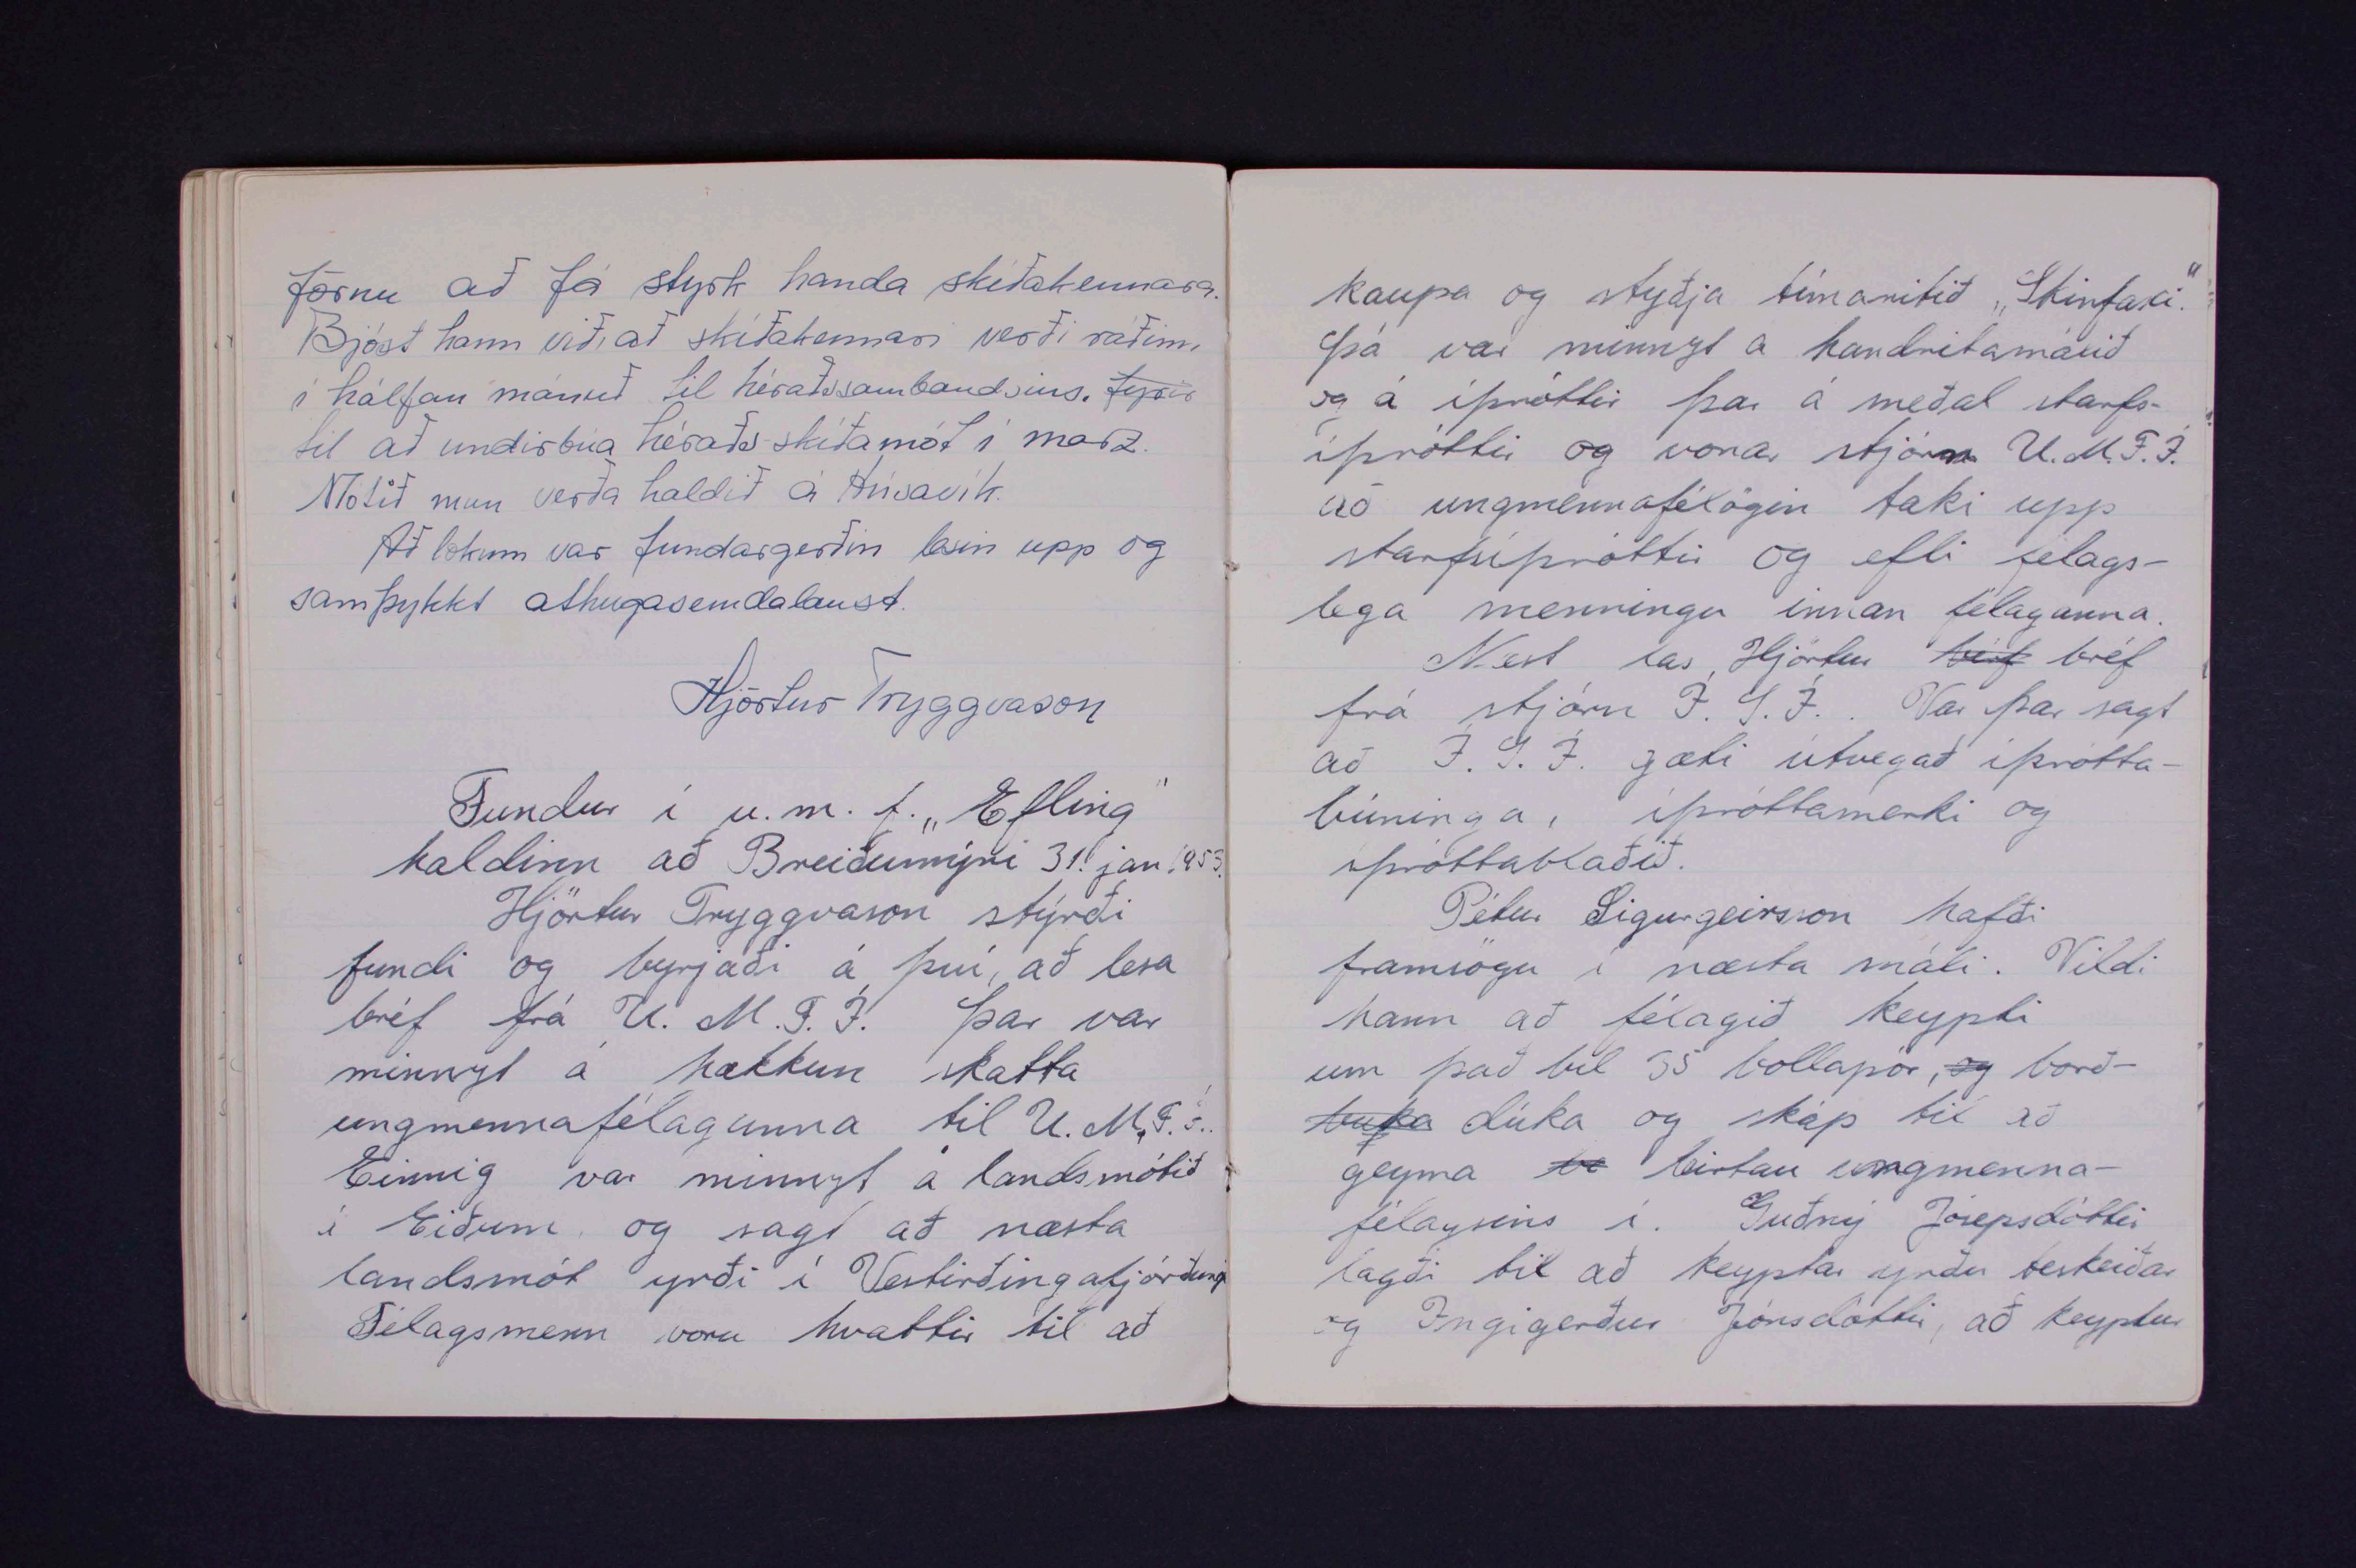 förnu að fá styrk handa skíðakennara.
Bjóst hann við, að skíðakennari verði ráðinn,
í hálfan mánuð til héraðssambandsins. fyrir
til að undirbúa héraðs-skíðamót í marz.
Mótið mun verða haldið á Húsavík.
Að lokum var fundargerðin lesin upp og
samþykkt athugasemdalaust.
Hjörtur Tryggvason
Fundur í u.m.f. „Efling“
haldinn að Breiðumýri 31. jan. 1953.
Hjörtur Tryggvason stýrði
fundi og byrjaði á því, að lesa
bréf frá U.M.F.Í. Þar var
minnyt á hækkun skatta
ungmennafélaganna til U.M.F.Í..
Einnig var minnyt á landsmótið
í Eiðum og sagt að næsta
landsmót yrði í Vestirðingafjórðungi
Félagsmenn voru hvattir til að
kaupa og styðja tímaritið „Skinfaxi“.
Þá var minnyt á handritamálið
og á íþróttir þar á meðal starfs-
íþróttir og vonar stjórn U.M.F.Í.
að ungmennafélögin taki upp
starfsíþróttir og efli félags-
lega menningu innan félaganna.
Næst las Hjörtur bérf bréf
frá stjórn Í.S.Í.. Var þar sagt
að Í.S.Í. gæti útvegað íþrótta-
búninga, íþróttamerki og
íþróttablaðið.
Pétur Sigurgeirsson hafði
framsögu í næsta máli. Vildi
hann að félagið keypti
um það bil 35 bollapör, og borð-
dúka og skáp til að
geyma be leirtau ungmenna-
félagsins í. Guðný Jósepsdóttir
lagði til að keyptar yrðu teskeiðar
og Ingigerður Jónsdóttir, að keyptur